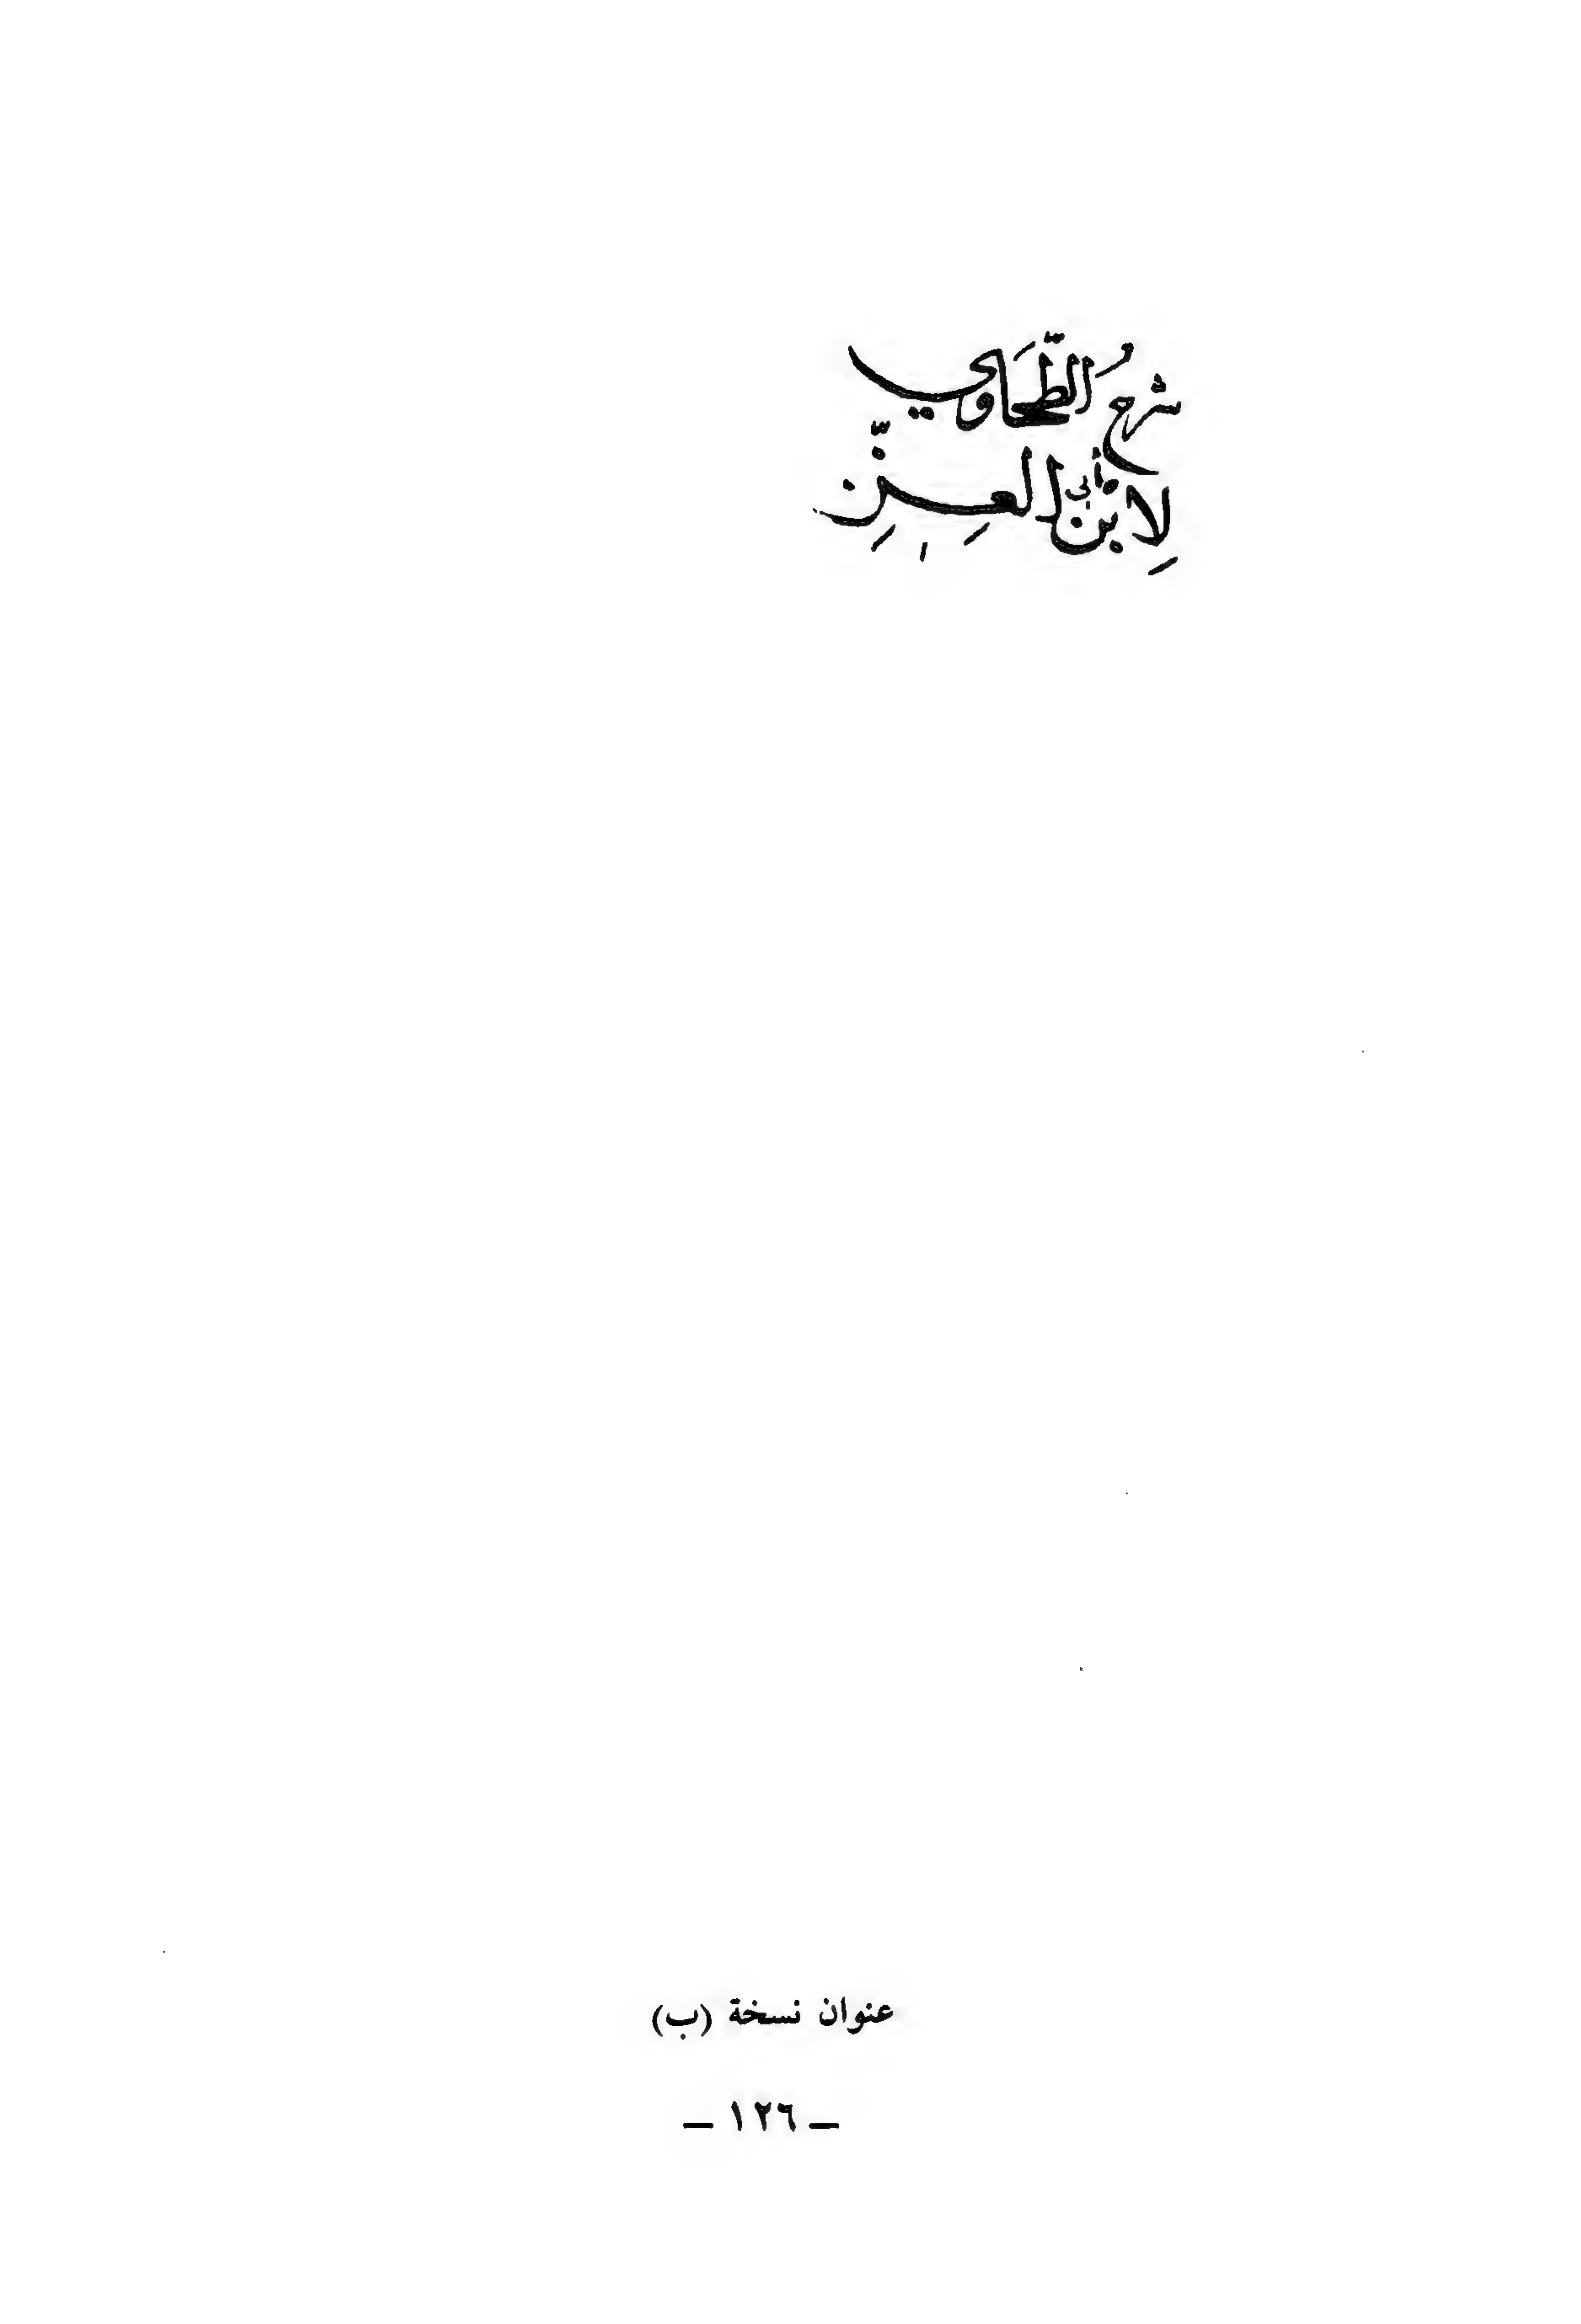 شرحُ الطَّحَاوي
لِابن أبي العِزِّ
عنوان نسخة (ب)
– ١٢٦ –